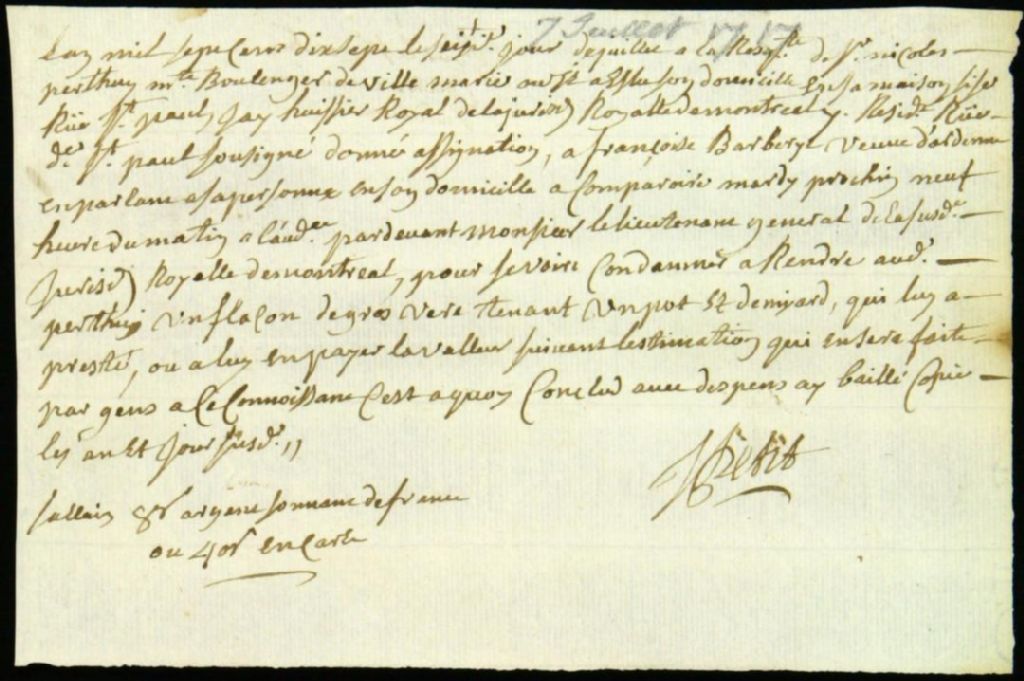 7 Juillet 1717
Lan mil sept Cens dix sept le sept.e jour de juillet a la Reqste de Sr. nicolas
perthuy mtre Boulenger de ville marie ou Il a Eslu son domicille En sa maison sise
Rüe St. paul, Jay huissier Royal de la jurison Royalle de montreal y. Residt Rüe
de St. paul sousigné donné assignation, a françoise Barbery veuve d'ardenne
en parlant a sa personne en son domicille a Comparoire mardy prochin neuf
heure du matin a l'audce pardevant Monsieur le lieutenant general de la susde
Jurison Royalle de montreal, pour se voire Condamner a Rendre audt
perthuy un flacon de gros vere tenant un pot Et demyard, qui luy a
presté, ou a luy en payer la valleur suivant lestimation qui en sera faite
par gens a Ce Connoissant C'est a quoy Conclud avec despens ay baillé Copie
les an Et Jour susdt //
Petit
sallair 8s argent sonnant de france
ou 40s en Carte